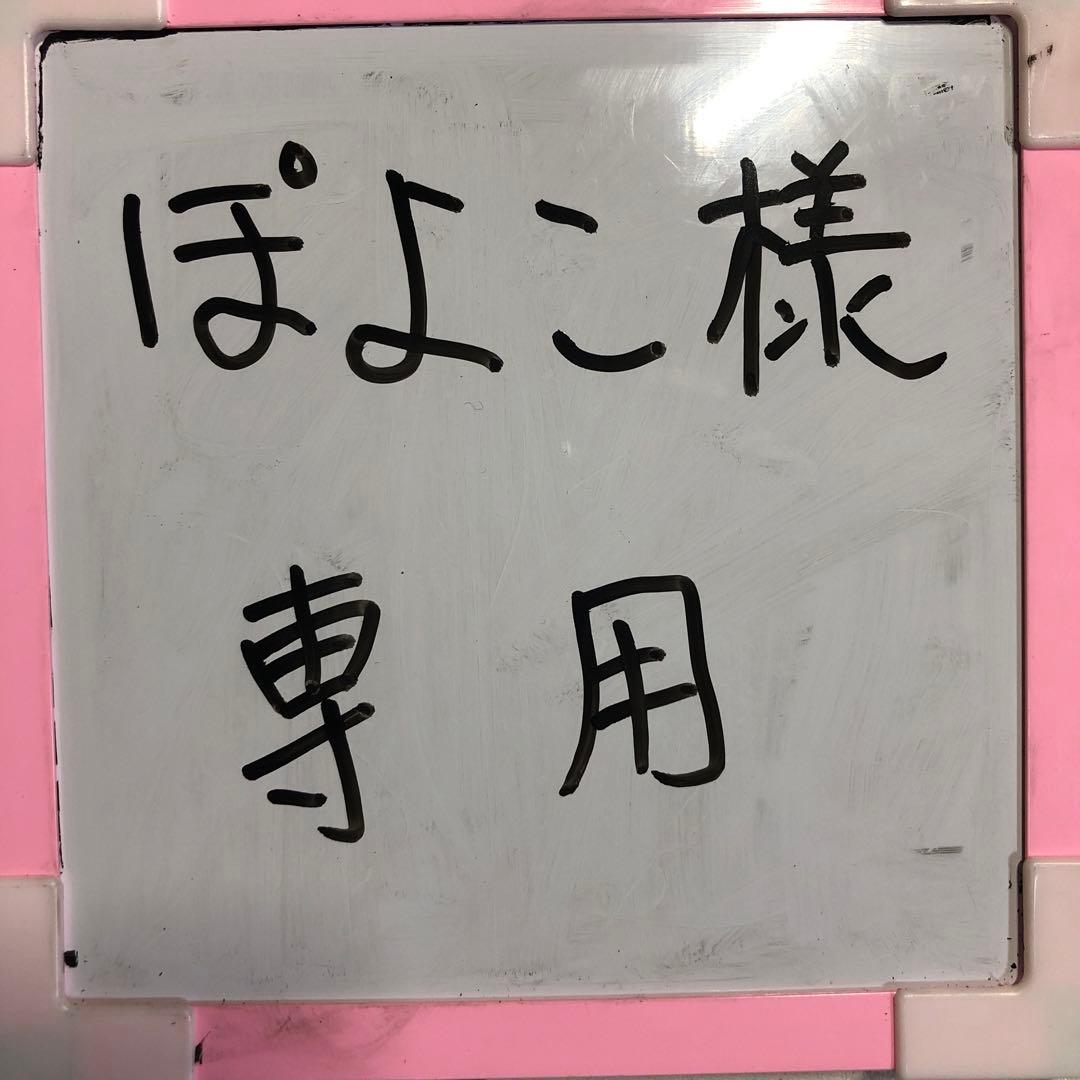 ぽよこ様
専用